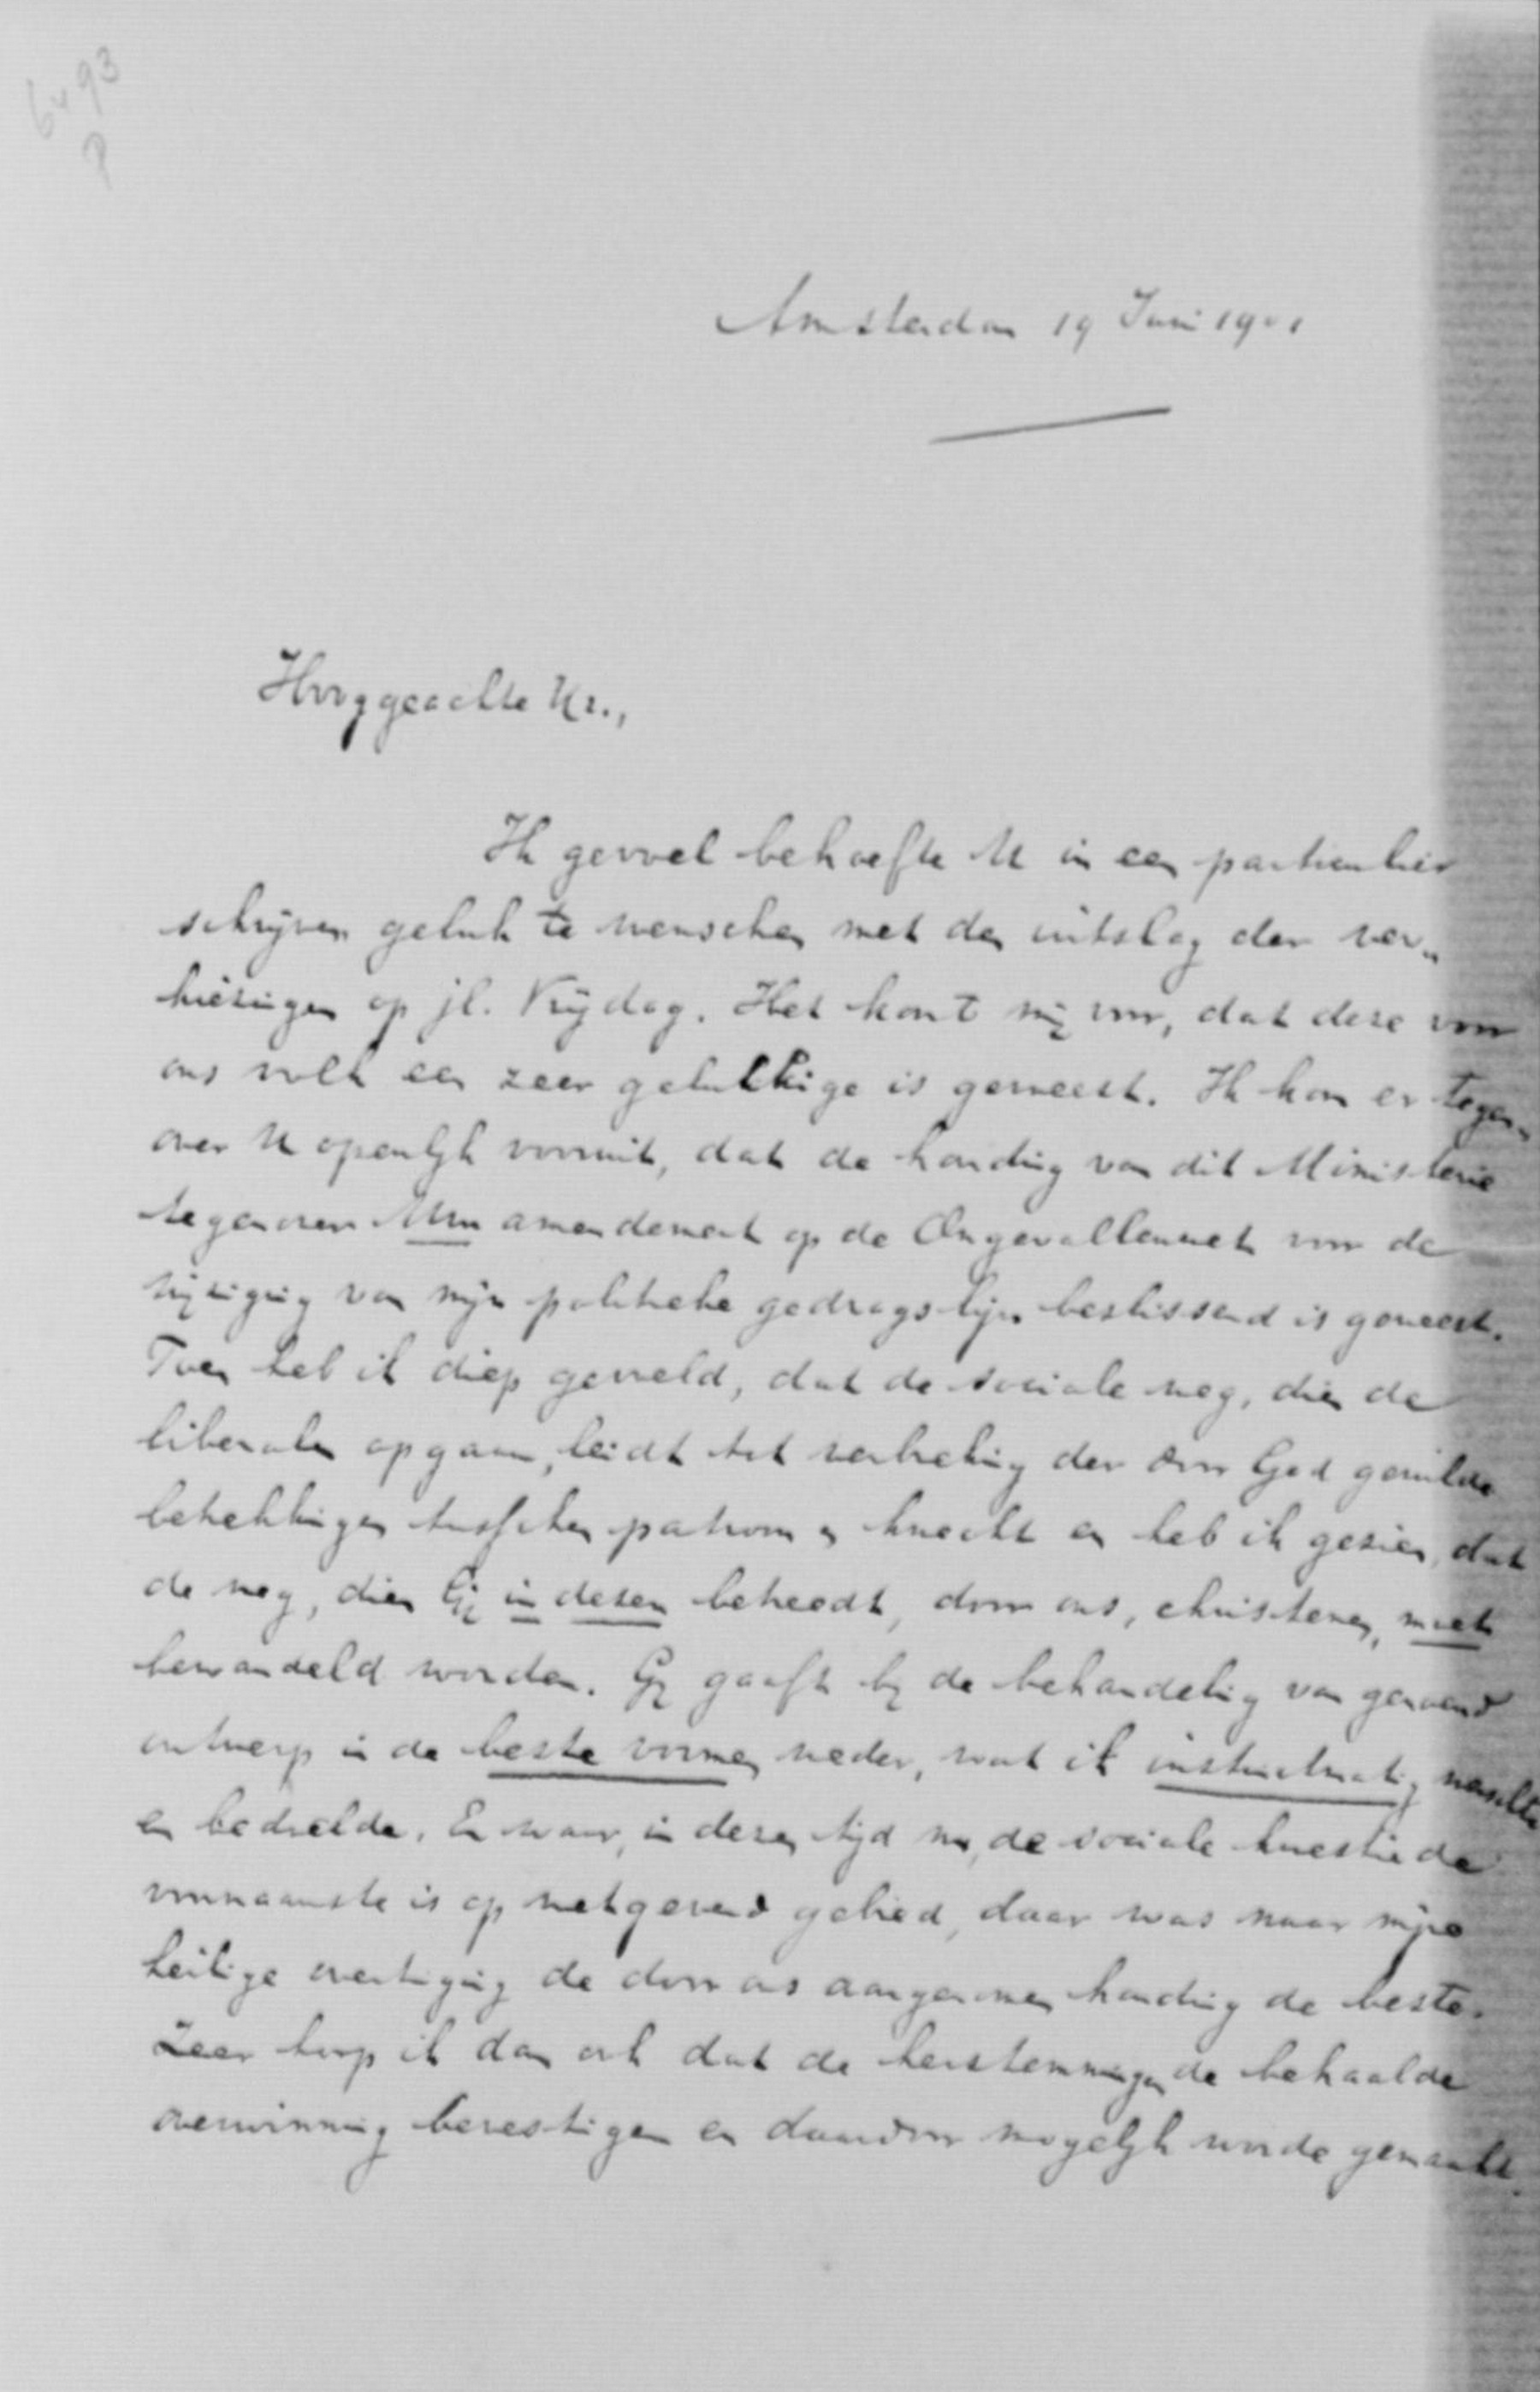 6493
P
Amsterdam 19 Juni 1901
Hooggeachte Hr.,
Ik gevoel behoefte U in een particulier
schrijven geluk te wenschen met den uitslag der ver„
kiezingen op jl. Vrijdag. Het komt mij voor, dat deze voor
ons volk een zeer gelukkige is geweest. Ik kom er tegen„
over U openlijk vooruit, dat de houding van dit Ministerie
tegenover Uw amendement op de Ongevallenwet voor de
wijziging van mijn politieke gedragslijn beslissend is geweest.
Toen heb ik diep gevoeld, dat de sociale weg, dien de
liberalen opgaan, leidt tot verbreking der door God gewilde
betrekkingen tusschen patroon en knecht en heb ik gezien, dat
de weg, dien Gij in dezen betreedt, door ons, christenen, moet
bewandeld worden. Gij gaaft bij de behandeling van genoemd
ontwerp in de beste vormen weder, wat ik instinctmatig wenschte
en bedoelde. En waar, in dezen tijd nu, de sociale kwestie de
voornaamste is op wetgevend gebied, daar was naar mijne
heilige overtuiging de door ons aangenomen houding de beste.
Zeer hoop ik dan ook dat de herstemmingen de behaalde
overwinning bevestigen en daardoor mogelijk worde gemaakt